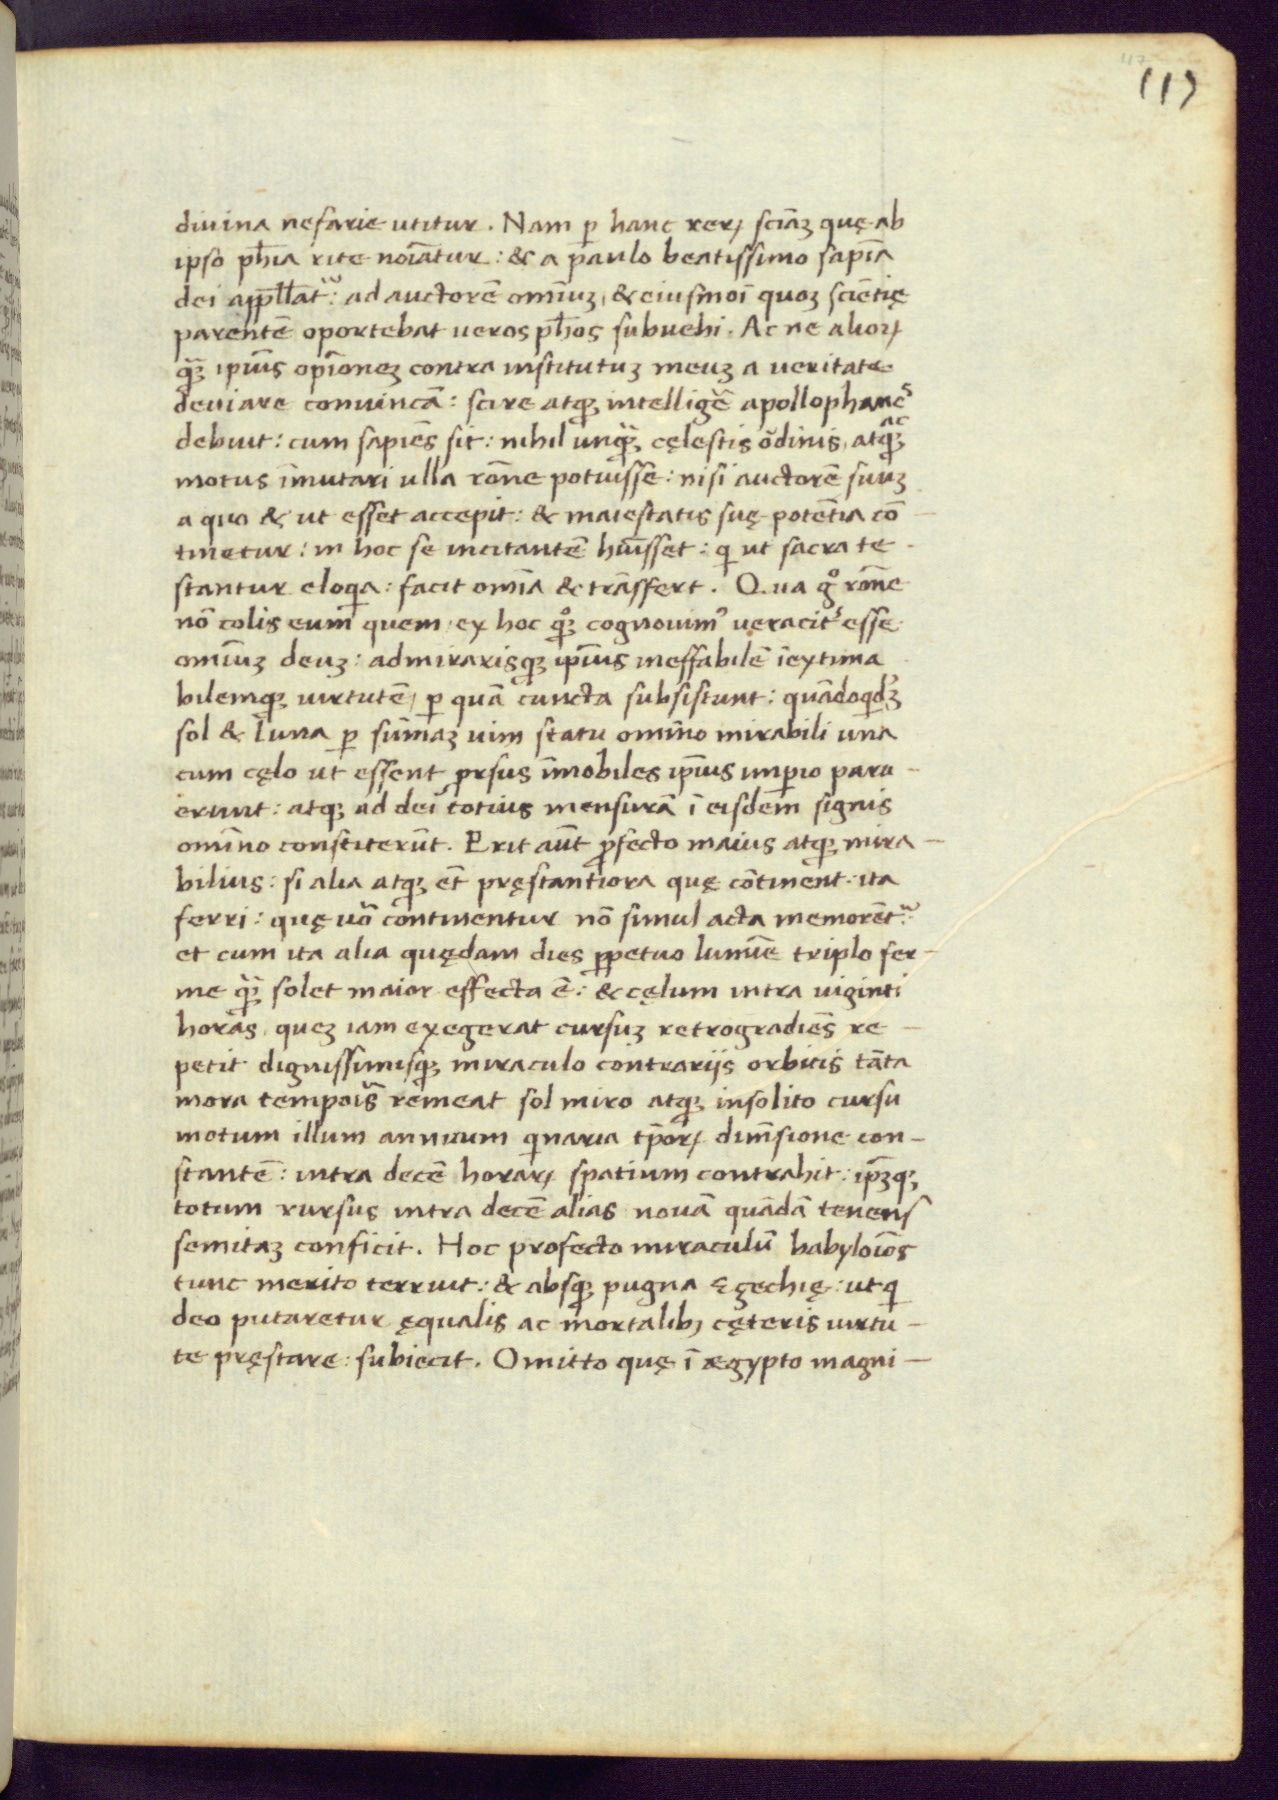 117
diuina nefarie utitur. Nam ꝑ hanc rerꝝ sciāꝫ quę ab
ipso ph̄ia rite noīatur: & a paulo beatissimo sapīa
dei appllat᷑: ad auctorē omīuꝫ, & eiusmōi quoꝫ sciētię
parentē oportebat ueros ph̄os subuehi. Ac ne alioꝝ
q̄ꝫ ipīus opīoneꝫ contra institutuꝫ meuꝫ a ueritate
deuiare conuincā: scire atqꝫ intelligē apollophanes
debuit: cum sapiēs sit: nihil unq̄ꝫ cęlestis ōdinis, ac atqꝫ
motus īmutari ulla rōne potuisse: nisi auctorē suuꝫ
a quo & ut esset accepit: & maiestatis suę potētia cō
tinetur: in hoc se incitantē hūisset: qi ut sacra te-
stantur eloqia: facit omīa & trāsfert. Qua gͦ rōne
nō colis eum quem, ex hoc qͦꝫ cognouimꝰ ueracit᷑ esse
omīuꝫ deuꝫ: admirarisqꝫ ipīus ineffabilē īextima
bilemqꝫ uirtutē, ꝑ quā cuncta subsistunt: quādoqdꝫ
sol & luna ꝑ sūmaꝫ uim statu omīno mirabili una
cum cęlo ut essent ꝓrsus īmobiles ipīus imꝑio paru-
erunt: atqꝫ ad dei totius mensurā ī eisdem signis
omīno constiterūt. Erit aūt ꝓfecto maius atqꝫ mira-
bilius: si alia atqꝫ ēt pręstantiora quę cōtinent. ita
ferri: quę uō continentur nō simul acta memorēt᷑:
et cum ita alia quędam dies ꝑpetuo lumīe triplo fer-
me q̄ꝫ solet maior effecta ē: & cęlum intra uiginti
horas, queꝫ iam exegerat cursuꝫ retrogradiēs re-
petit dignissimisqꝫ miraculo contrarijs orbitis tāta
mora tempois remeat sol miro atqꝫ insolito cursu
motum illum annuum qinaria tp̄orꝝ dimēsione con-
stantē: intra decē horarꝝ spatium contrahit: ip̄ꝫqꝫ
totum rursus intra decē alias nouā quādā tenens
semitaꝫ conficit. Hoc profecto miraculū babyloīos
tunc merito terruit: & absqꝫ pugna ęzechię: ut qi
deo putaretur ęqualis ac mortalibꝫ cęteris uirtu-
te pręstare: subiecit. Omitto quę ī ægypto magni-